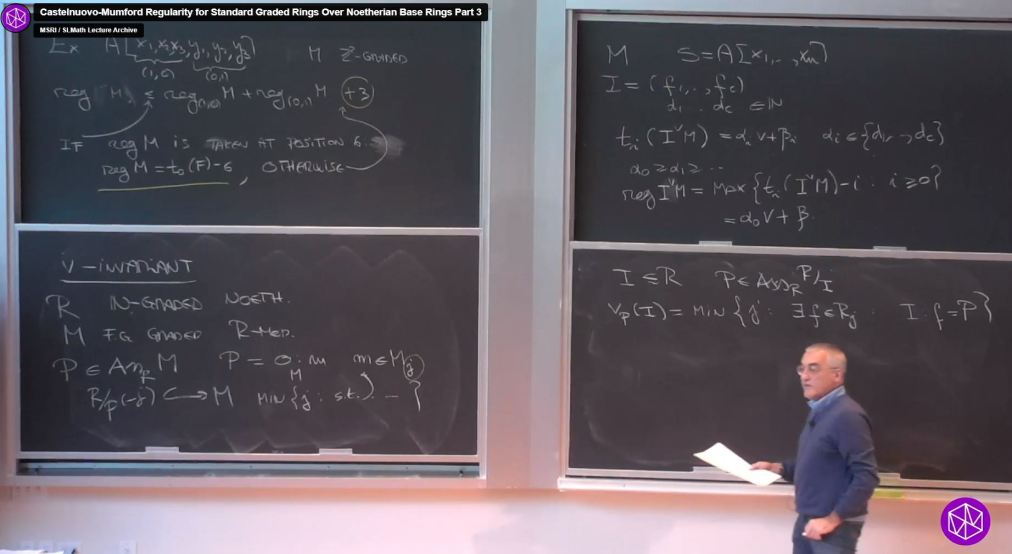 Castelnuovo-Mumford Regularity for Standard Graded Rings Over Noetherian Base Rings Part 3
MSRI / SLMath Lecture Archive
Ex A[x₁,x₂,x₃,y₁,y₂,y₃] M Z²-GRADED
(1,0) (0,1)
reg M ≤ reg₍₁,₀₎ M + reg₍₀,₁₎ M +3
IF reg M IS TAKEN AT POSITION 6
reg M = t₆(F)-6, OTHERWISE
V-INVARIANT
R IN-GRADED NOETH.
M F.G. GRADED R-MOD.
P ∈ Ass_R M P = 0 :_M m m ∈ M_j
R/P(-j) ↪ M MIN { j : s.t. ... }
M S = A[x₁,..,xₙ]
I = (f₁,..,f_c)
d₁ .. d_c ∈ IN
t_i(I^v M) = α_i v + β_i α_i ∈ {d₁,..,d_c}
α₀ ≥ α₁ ≥ ...
reg I^v M = MAX { t_i(I^v M) - i : i ≥ 0 }
= α₀ v + β
I ⊆ R P ∈ Ass_R R/I
v_P(I) = MIN { j : ∃ f ∈ R_j : I : f = P }